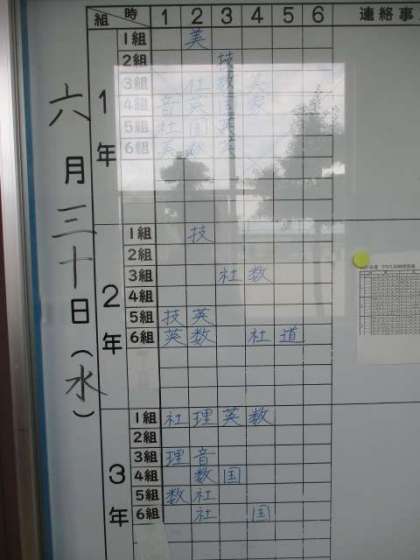 六月三十日（水）
組 時 1 2 3 4 5 6 連絡事
1年
1組 英
2組 技
3組 社 数 英
4組 音 英 国 数
5組 社 国 英
6組 英 数
2年
1組 技
2組
3組 社 数
4組
5組 技 英
6組 英 数 社 道
3年
1組 社 理 英 数
2組
3組 理 音
4組 数 国
5組 数 社
6組 社 国